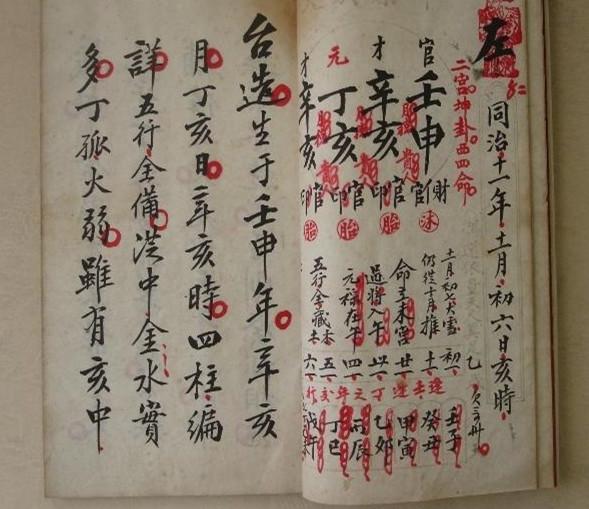 左
同治十一年十一月初六日亥時
二宮坤卦西四命
官 壬申 財官印
才 辛亥 官印
元 丁亥 官印
才 辛亥 官印
沐
胎
胎
胎
十一月初七大雪
仍從十月推
命立未宮
過將入午
元祿在午
五行金藏木土
初一 壬子
十一 癸丑
廿一 甲寅
卅一 乙卯
四一 丙辰
五一 丁巳
六一 戊午
台造生于壬申年辛亥
月丁亥日辛亥時四柱編
詳五行全備洪中金水實
多丁孤火弱雖有亥中